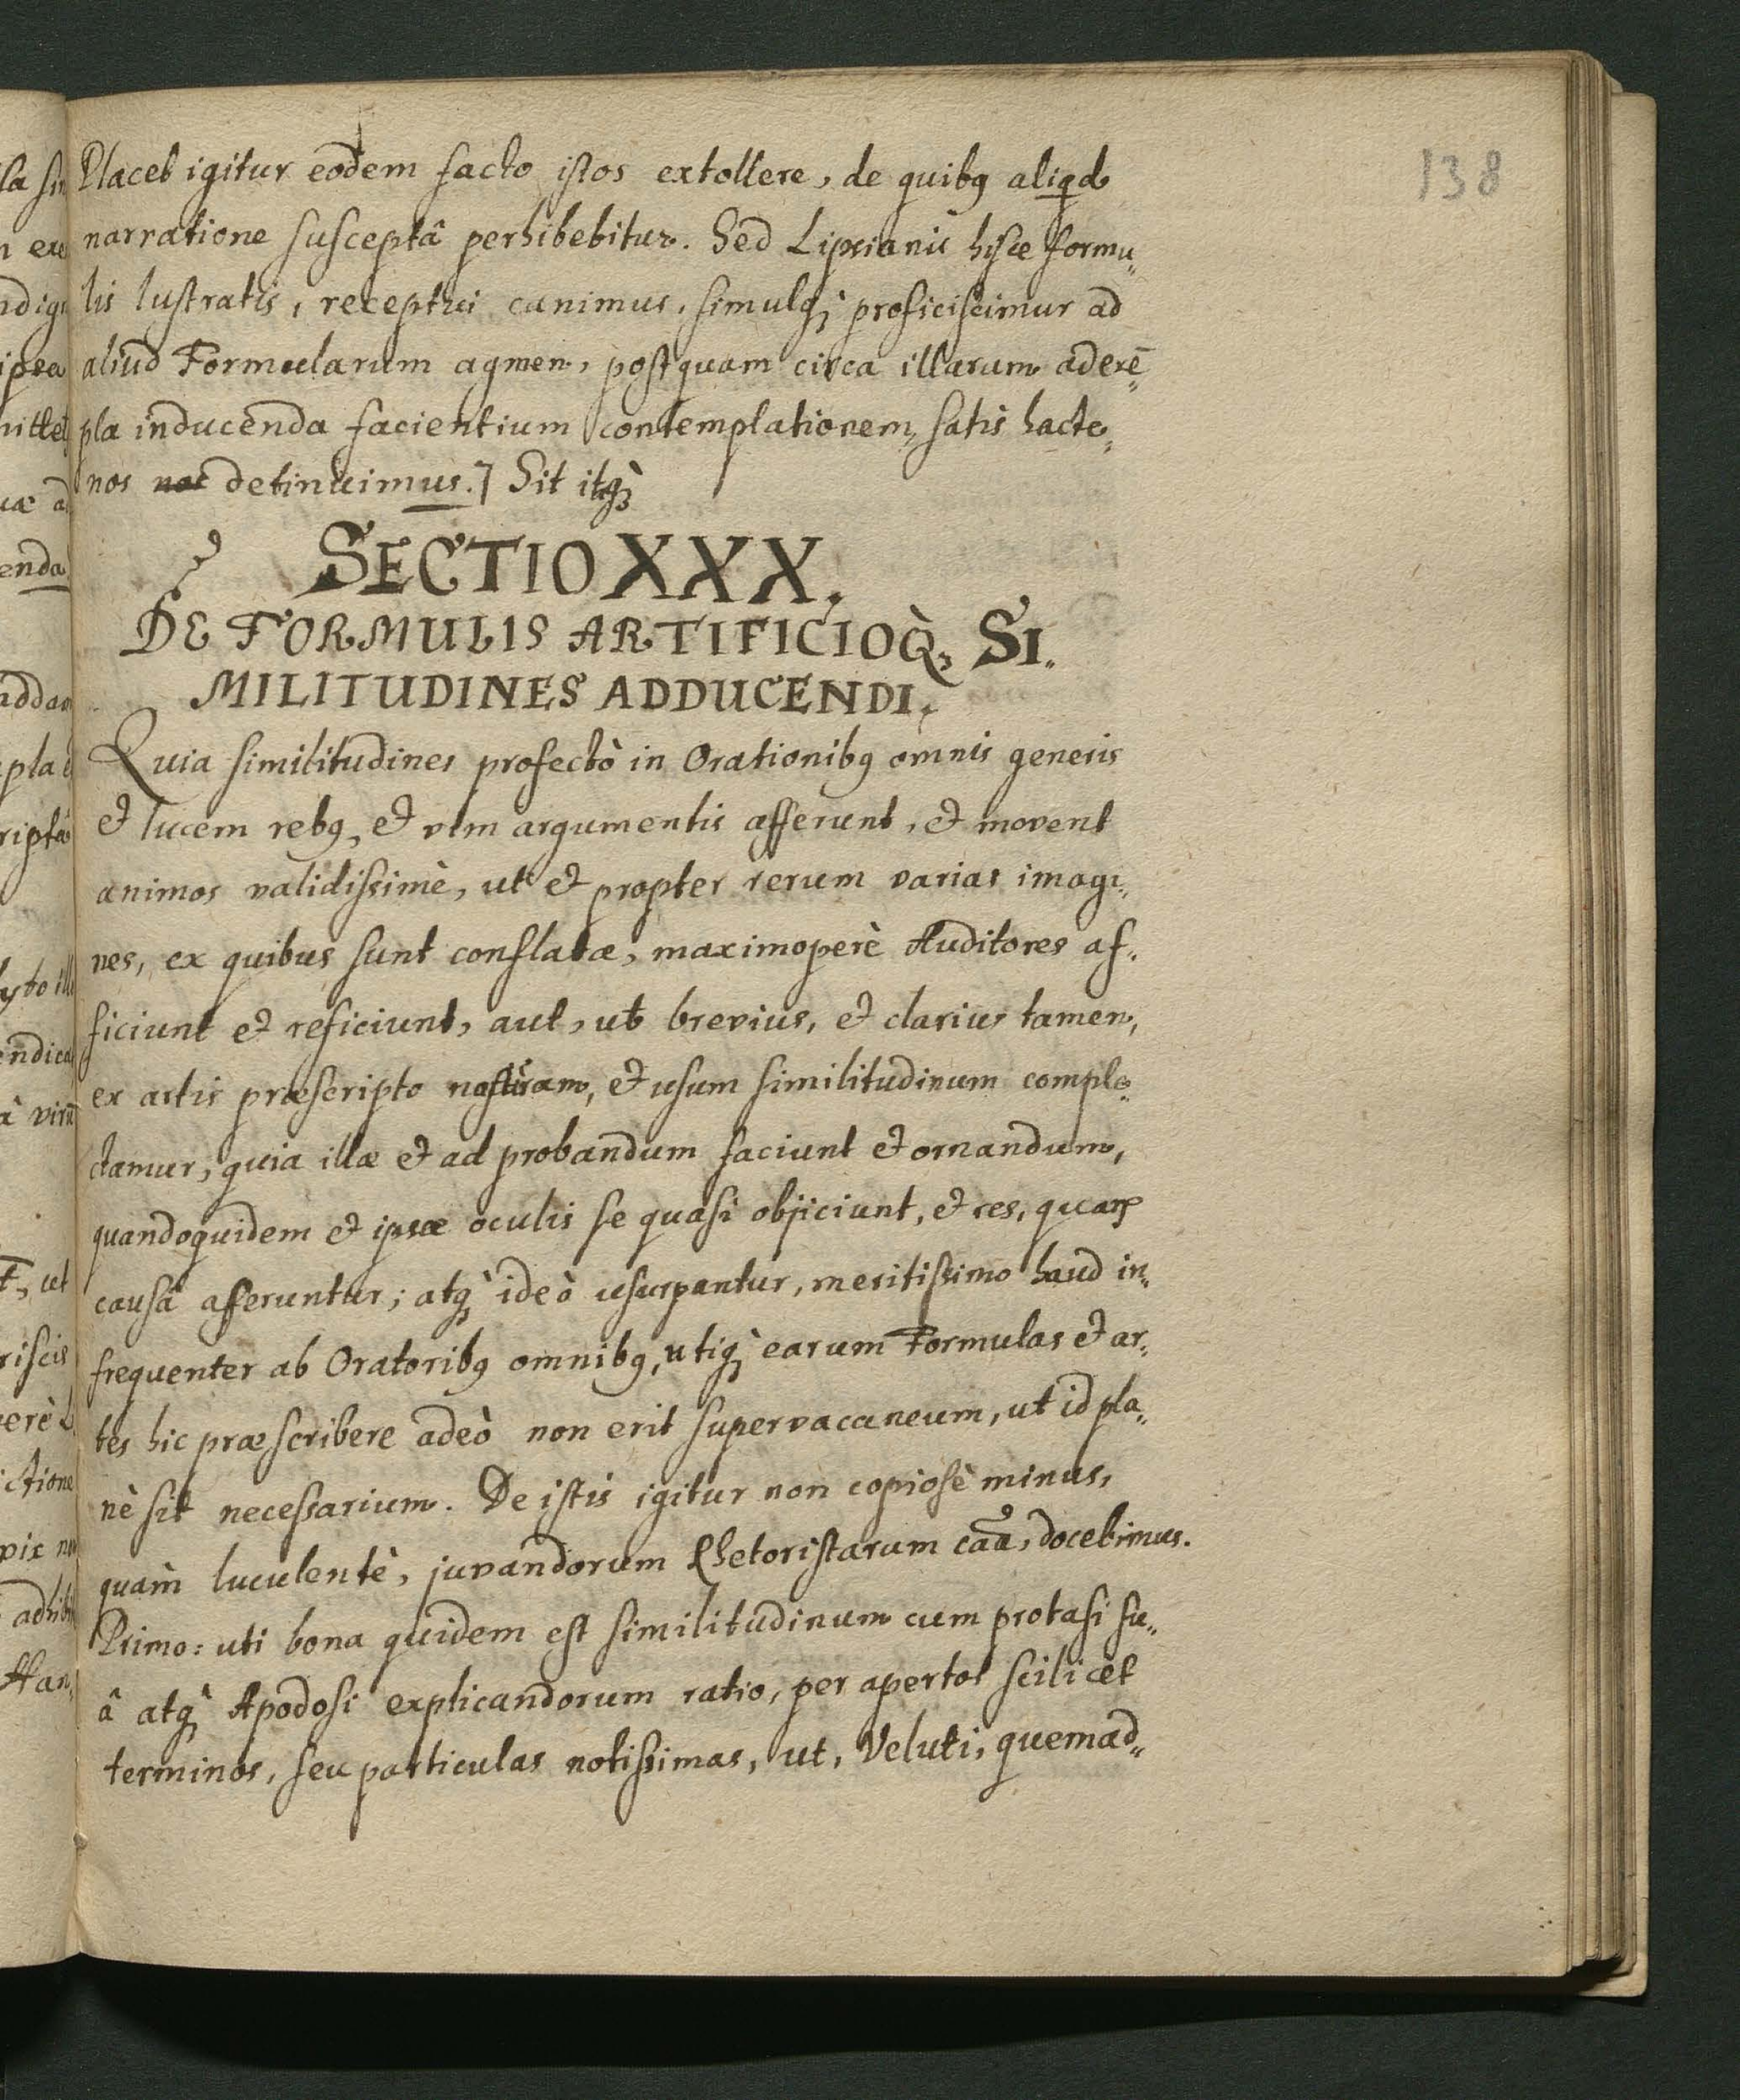 138
Placet igitur eodem facto istos extollere, de quibꝯ aliqd
narratione susceptâ perhibebitur. Sed Lipsianis hisce formu„
lis lustratis, receptui canimus, simulqꝫ̀ proficiscimur ad
aliud Formularum agmen, postquam circa illarum ad exē„
pla inducenda facientium contemplationem, satis hacte„
nos detinuimus.] Sit itqꝫ̀
SECTIO XXX.
DE FORMULIS ARTIFICIOQ̀, SI„
MILITUDINES ADDUCENDI.
Quia similitudines profectò in Orationibꝯ omnis generis
et lucem rebꝯ, et vim argumentis afferunt, et movent
animos validissimè, ut et propter rerum varias imagi„
nes, ex quibus sunt conflatæ, maximoperè Auditores af„
ficiunt et reficiunt, aut, ut brevius, et clarius tamen,
ex artis præscripto naturam, et usum similitudinum comple„
ctamur, quia illæ et ad probandum faciunt et ornandum,
quandoquidem et ipsæ oculis se quasi objiciunt, et res, quaꝝ
causâ afferuntur; atqꝫ̀ ideò usurpantur, meritissimo haud in„
frequenter ab Oratoribꝯ omnibꝯ, utiqꝫ̀ earum Formulas et ar„
tes hic præscribere adeò non erit supervacaneum, ut id pla„
nè sit necessarium. De istis igitur non copiosè minus,
quàm luculentè, juvandorum Rhetoristarum caã, docebimus.
Primo: uti bona quidem est similitudinum cum protasi su„
â atqꝫ̀ Apodosi explicandorum ratio, per apertos scilicet
terminos, seu particulas notissimas, ut, Veluti, quemad„